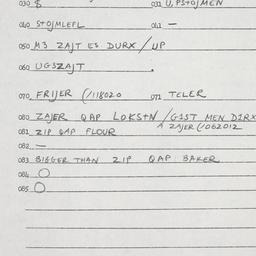 030 $ 031 U, PSTOJMEN
040 STOJMLEFL 041 —
050 M3 ZAJT ES DURX / UP
060 UGSZAJT .
070 FRIJER (/118020 071 TELER
080 ZAJER QAP LOKSTN / GIST MEN DIRX
081 ZIP QAP FLOUR ^ ZAJER (/062012
082 —
083 BIGGER THAN ZIP QAP BAKER
084 O
085 O